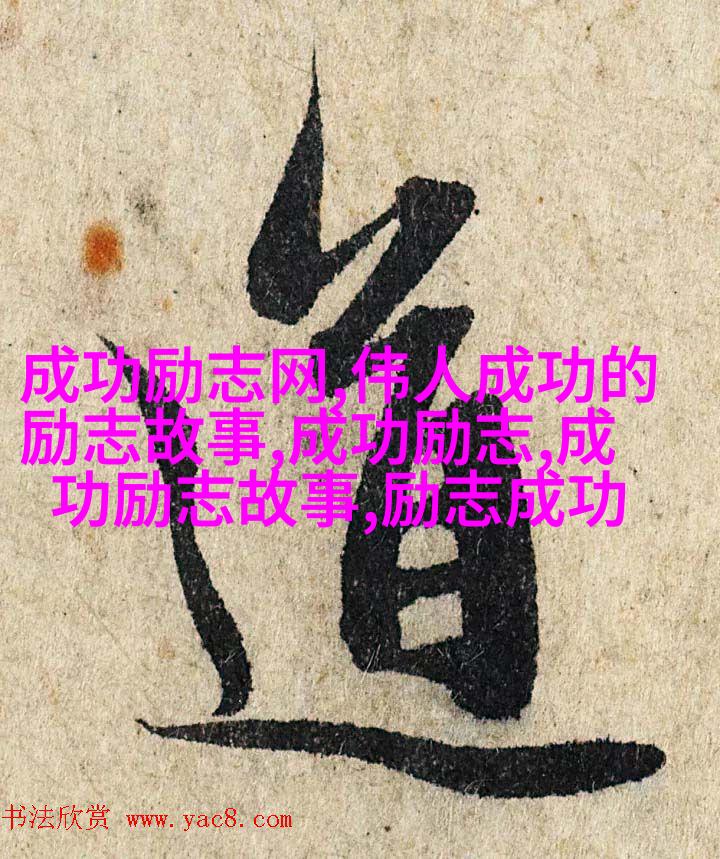 道
成功励志网,伟人成功的
励志故事,成功励志,成
功励志故事,励志成功
书法欣赏 www.yac8.com